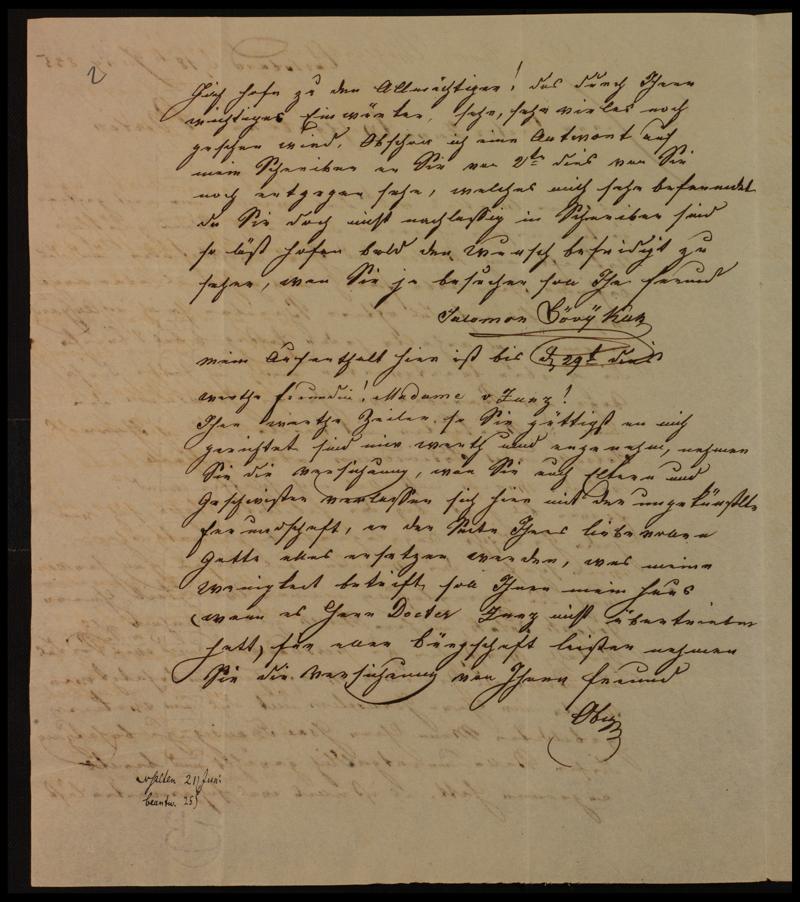 2
Ich hofe zu den Allmächtiger! das durch Ihern
wichtiges Einwürken, sehr, sehr vieles noch
geschen wird. Obschon ich eine Antwort auf
mein Schreiben an Sie von 2t dies von Sie
noch entgegen sehe, welches mich sehr befremdet
da Sie doch nicht nachlessig in Schreiben sind
so läst hofen bald den Wunsch befridigt zu
sehen, wan Sie ja besuchen soll Ihr freund
Salomon
mein Aufenthalt hier ist bis d 29t dies
werthe freundin! Madame v Zunz!
Ihre werthe Zeilen so Sie güttigst an mich
gerichtet sind mir werth und angenehm, nehmen
Sie die versicherung, wan Sie auch Eltern und
Geschwister verlassen sich hier mit der ungekünstlte
freundschaft, an der Seite Ihres liebevollen
Gatte alles ersetzen werden, was meine
Wenigkeit betrift soll Ihnen mein Haus
(wann es Herr Docter Zunz nicht übertrieben
hatt) für alles bürgschaft leisten nehmen
Sie die versicherung von Ihren freund
Obig
erhalten 21 Juni
beantw. 25)